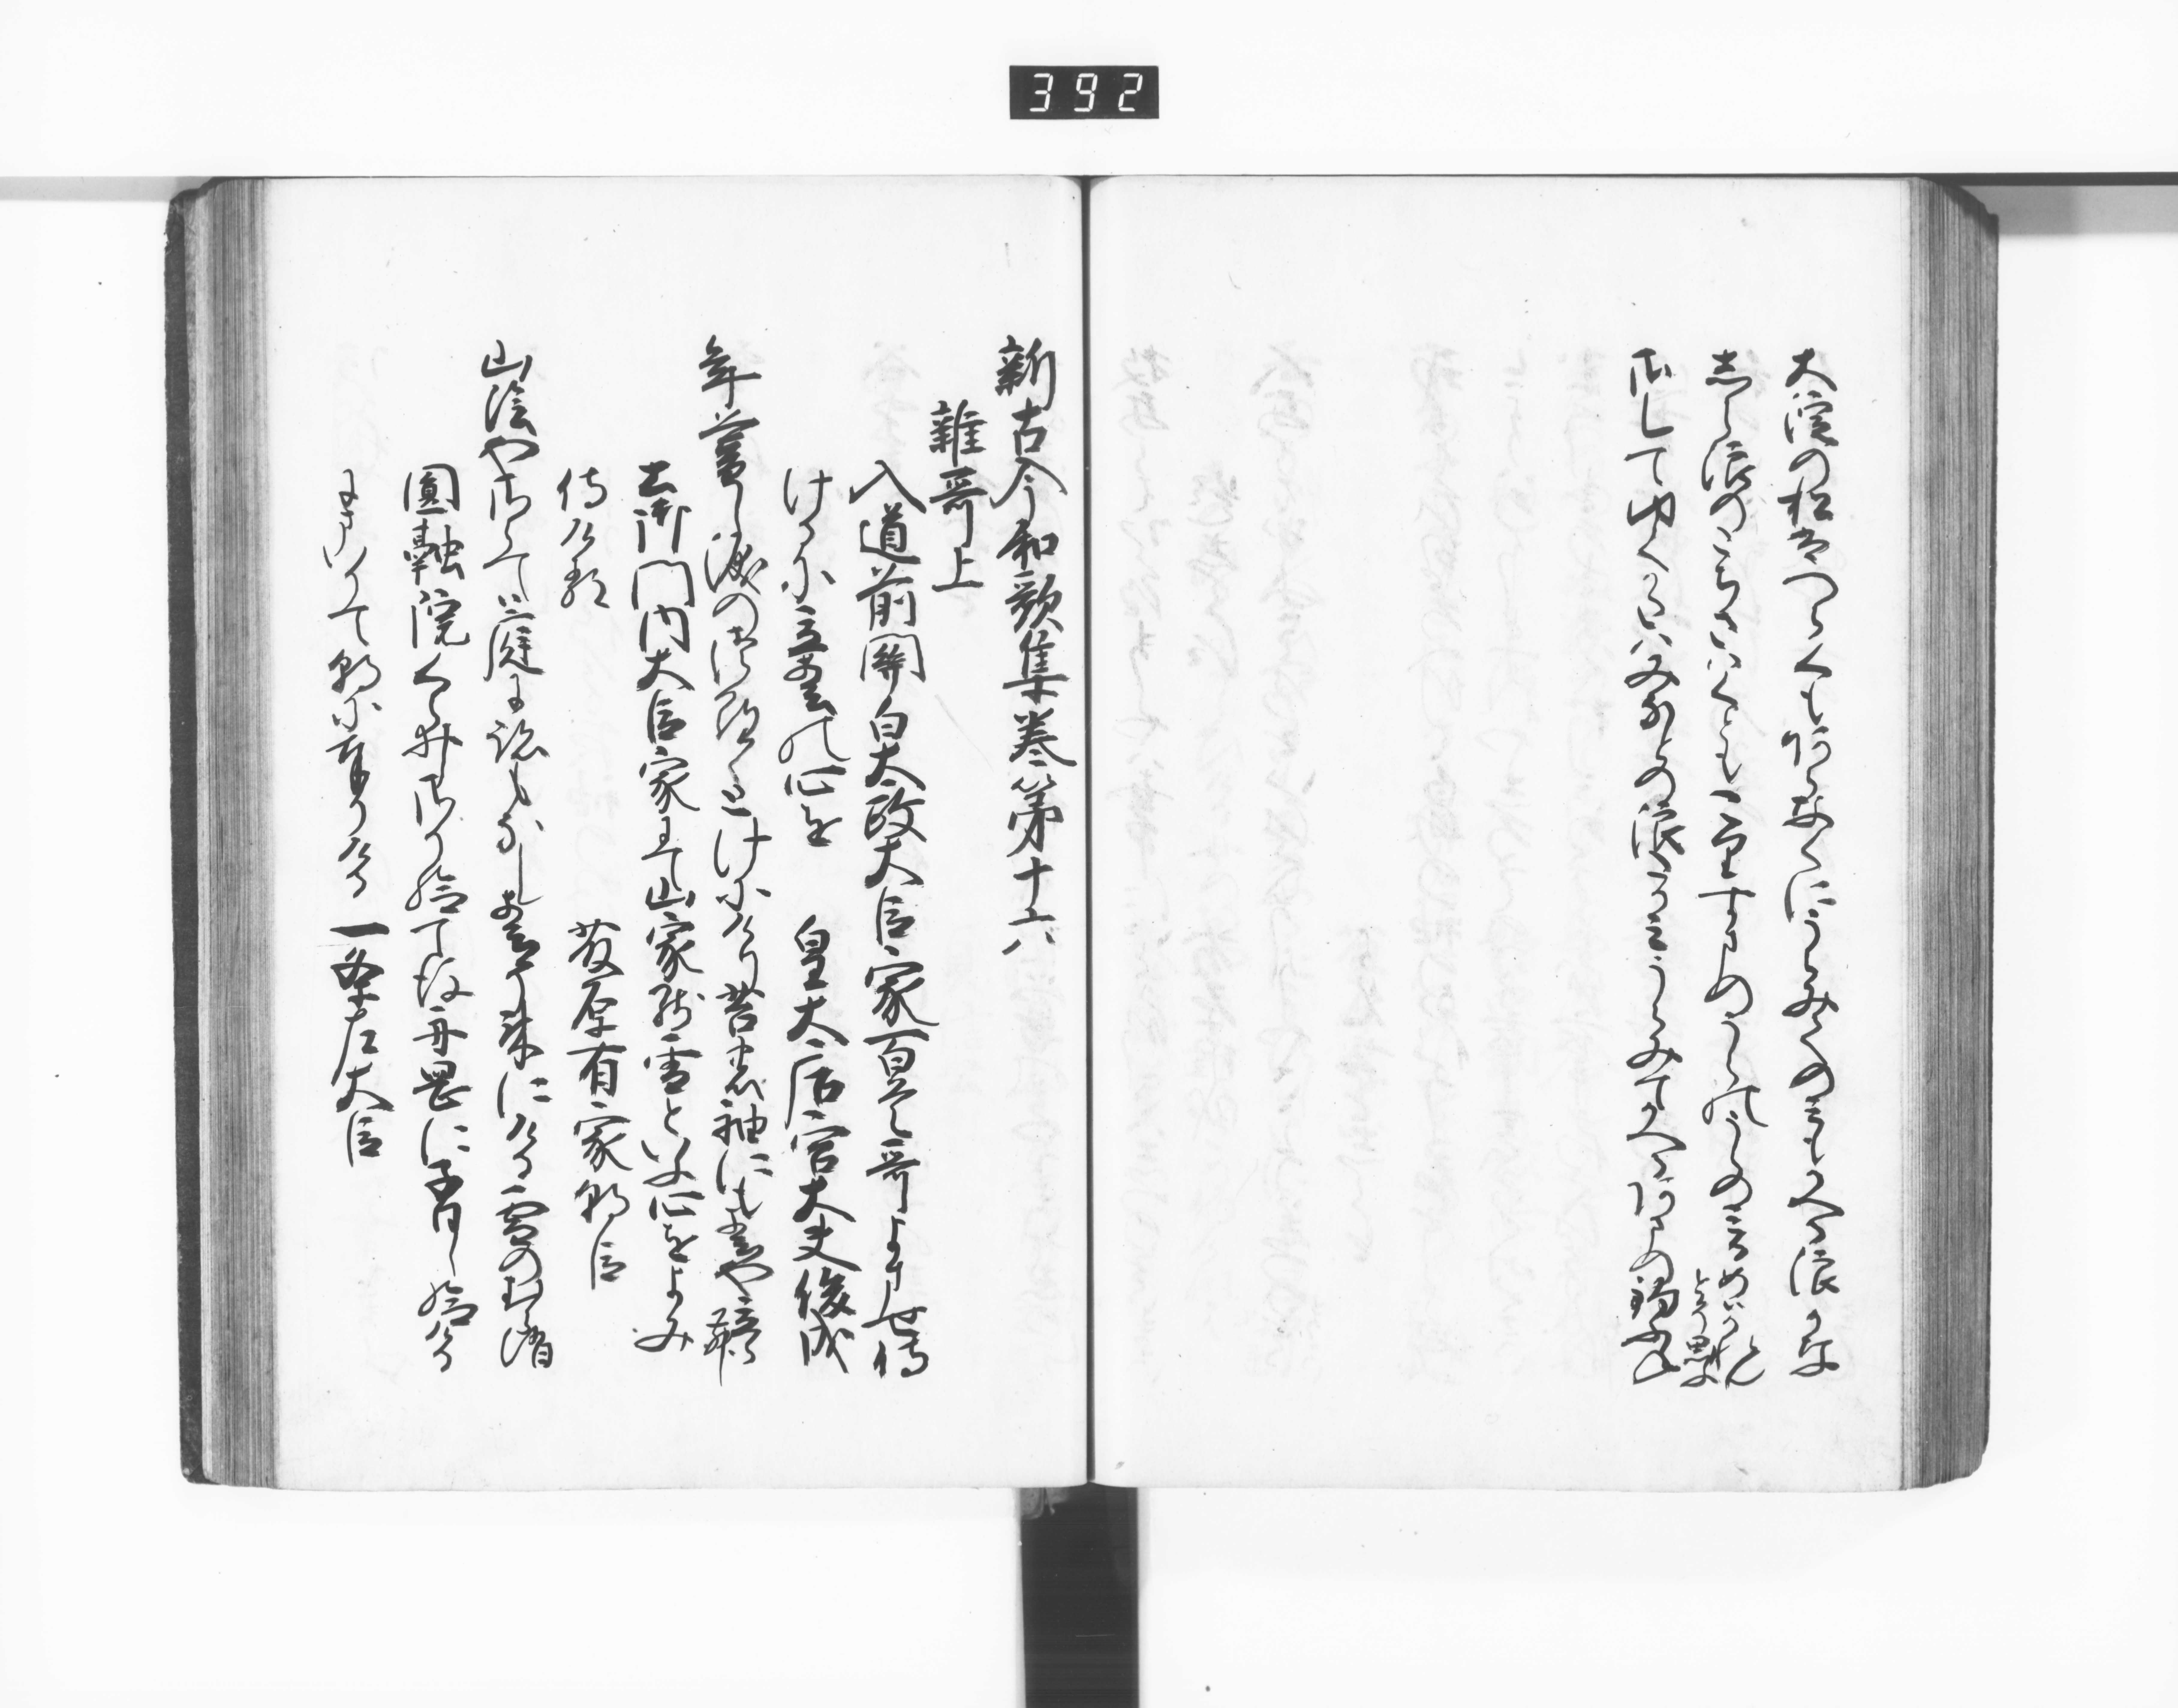 392
大淀の松はつらくもあらなくにうらみてのみもかへる浪かな
しら浪のこゑさはくともすまのうらの
おしてゆくみなとの浪うらみてかへるあまの釣ふね
新古今和歌集巻第十六
雑哥上
入道前関白太政大臣家百首哥よませ侍
けるに立春の心を 皇太后宮大夫俊成
年暮し涙のつらゝとけにけり苔の袖にも春や立らん
土御門内大臣家にて山家残雪といふ心をよみ
侍ける 藤原有家朝臣
山陰やさらては庭に跡もなし春そ来にける雪のむら消
圓融院くらゐさり給て後舟岡に子日し給ける
にまいりて朝に奉りける 一条左大臣